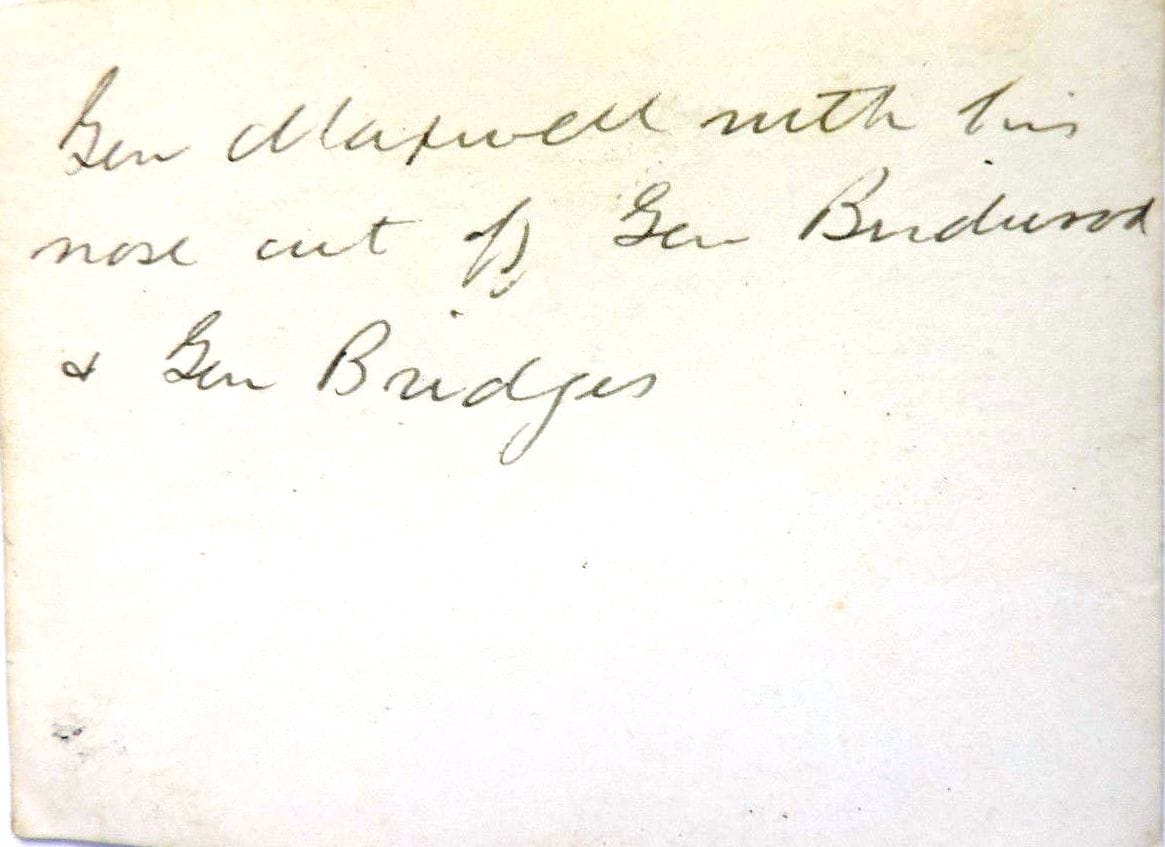 Gen Maxwell with his
nose cut off Gen Birdwood
& Gen Bridges